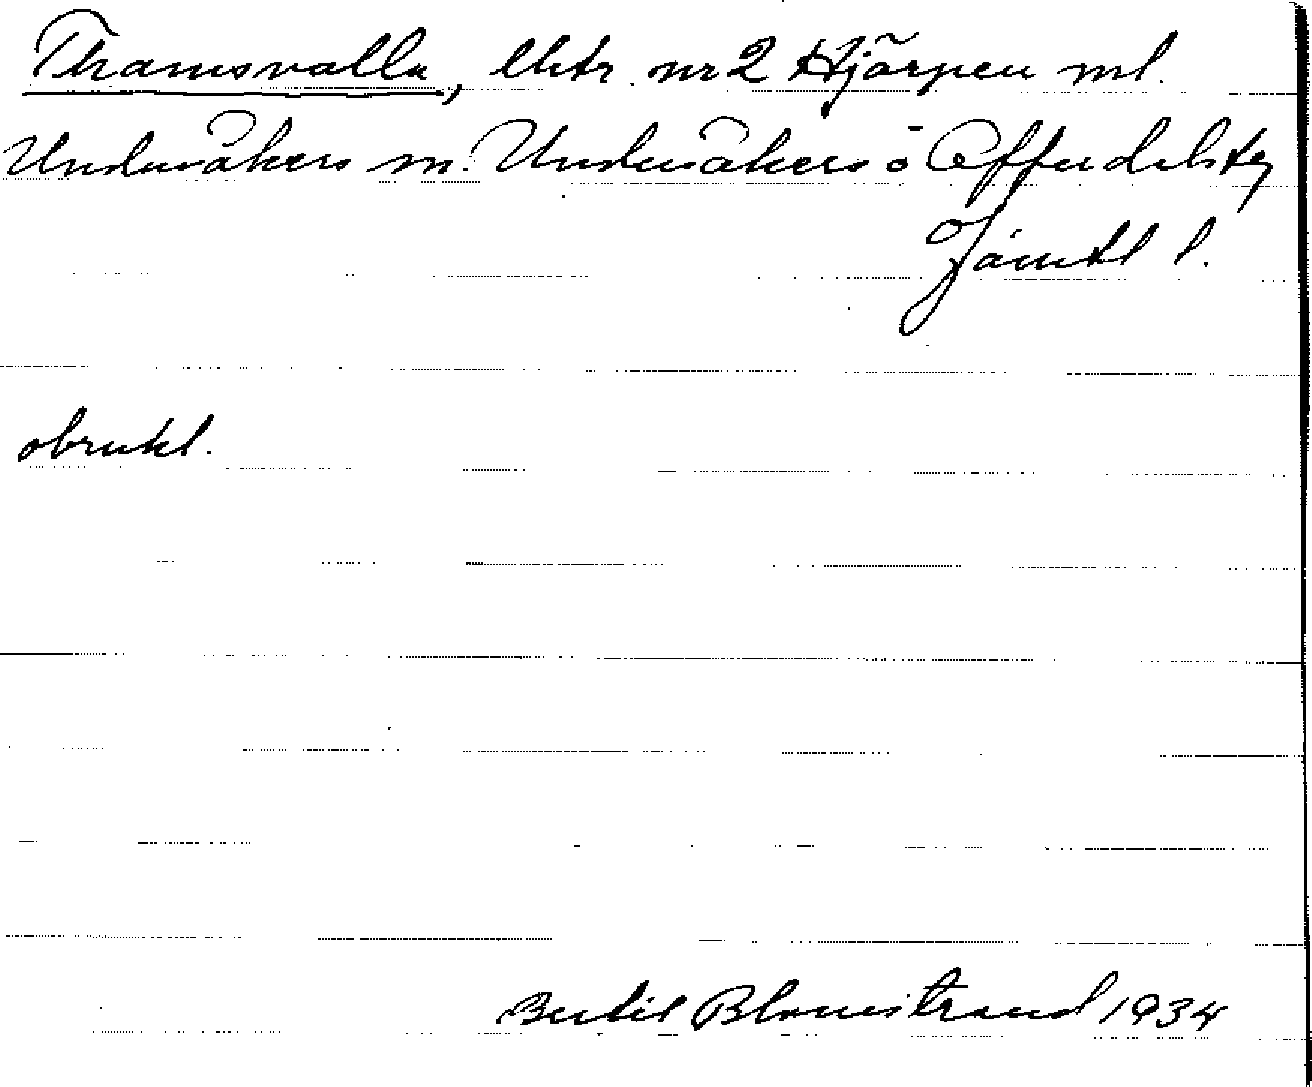 Thamsvalla, lhtr nr 2 Hjärpen ml.
Undersåkers sn. Undersåkers o Offerdals tg
Jämtl l.
obrukl.
Bertil Blomstrand 1934